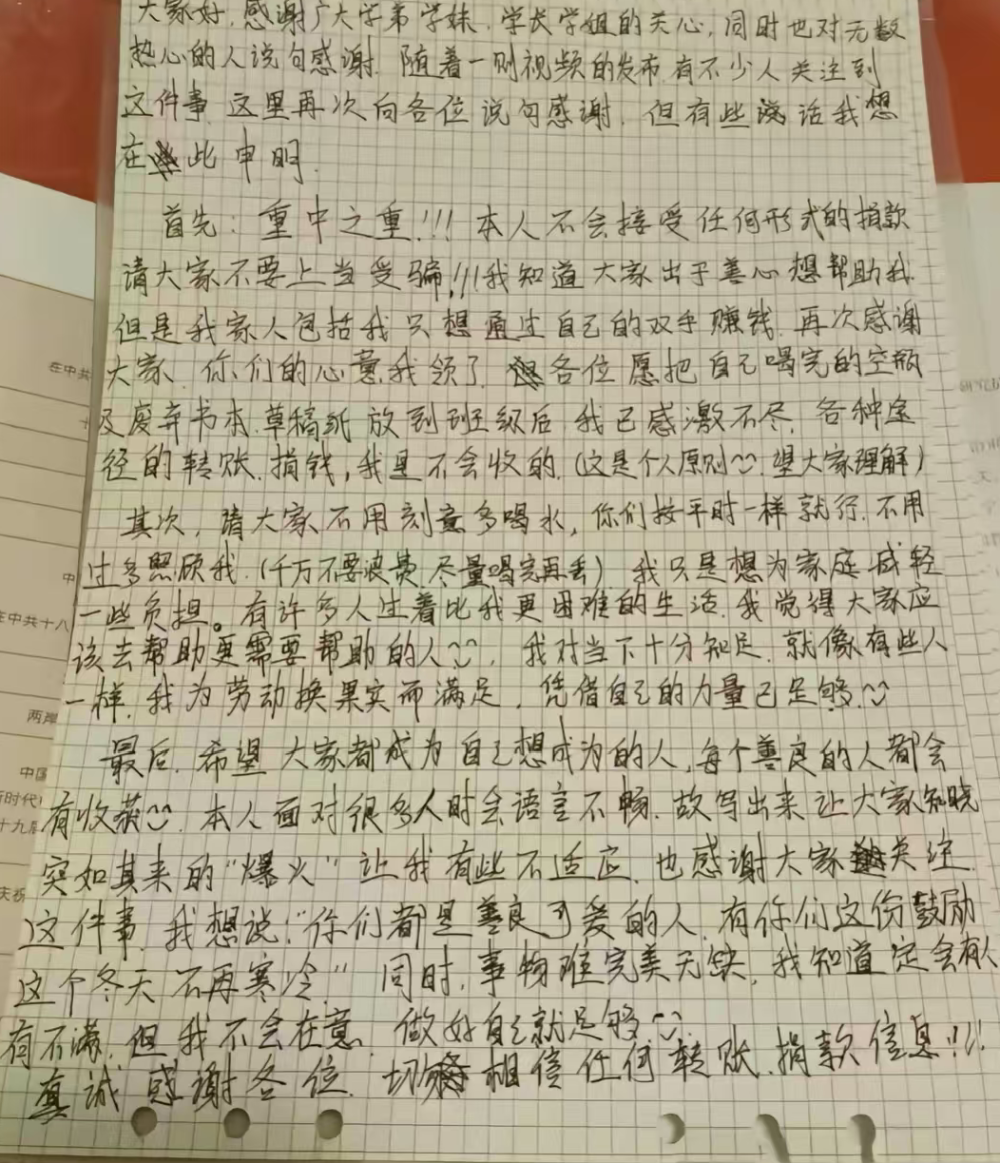 大家好，感谢广大学弟学妹、学长学姐的关心，同时也对无数
热心的人说句感谢. 随着一则视频的发布有不少人关注到
这件事. 这里再次向各位说句感谢. 但有些话我想
在此申明.
首先：重中之重!!! 本人不会接受任何形式的捐款
请大家不要上当受骗!!! 我知道大家出于善心想帮助我.
但是我家人包括我只想通过自己的双手赚钱. 再次感谢
大家. 你们的心意我领了. 各位愿把自己喝完的空瓶
及废弃书本.草稿纸放到班级后我已感激不尽. 各种途
径的转账.捐钱，我是不会收的.(这是个人原则. 望大家理解)
其次，请大家不用刻意多喝水，你们按平时一样就行. 不用
过多照顾我.(千万不要浪费.尽量喝完再丢) 我只是想为家庭减轻
一些负担。有许多人过着比我更困难的生活. 我觉得大家应
该去帮助更需要帮助的人. 我对当下十分知足. 就像有些人
一样. 我为劳动换果实而满足. 凭借自己的力量已足够.
最后. 希望大家都成为自己想成为的人, 每个善良的人都会
有收获. 本人面对很多人时会语言不畅. 故写出来让大家知晓
突如其来的“爆火”让我有些不适应. 也感谢大家关注
这件事. 我想说:“你们都是善良可爱的人. 有你们这份鼓励
这个冬天不再寒冷.” 同时, 事物难完美无缺. 我知道定会有人
有不满. 但我不会在意. 做好自己就足够.
真诚感谢各位. 切 相信任何转账.捐款信息!!!
在中共
中
在中共十八
两岸
中国
新时代
十九届
庆祝